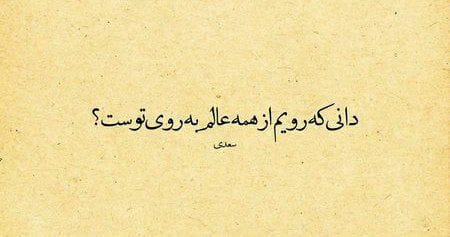 دانی که رویم از همه عالم به روی توست؟
سعدی